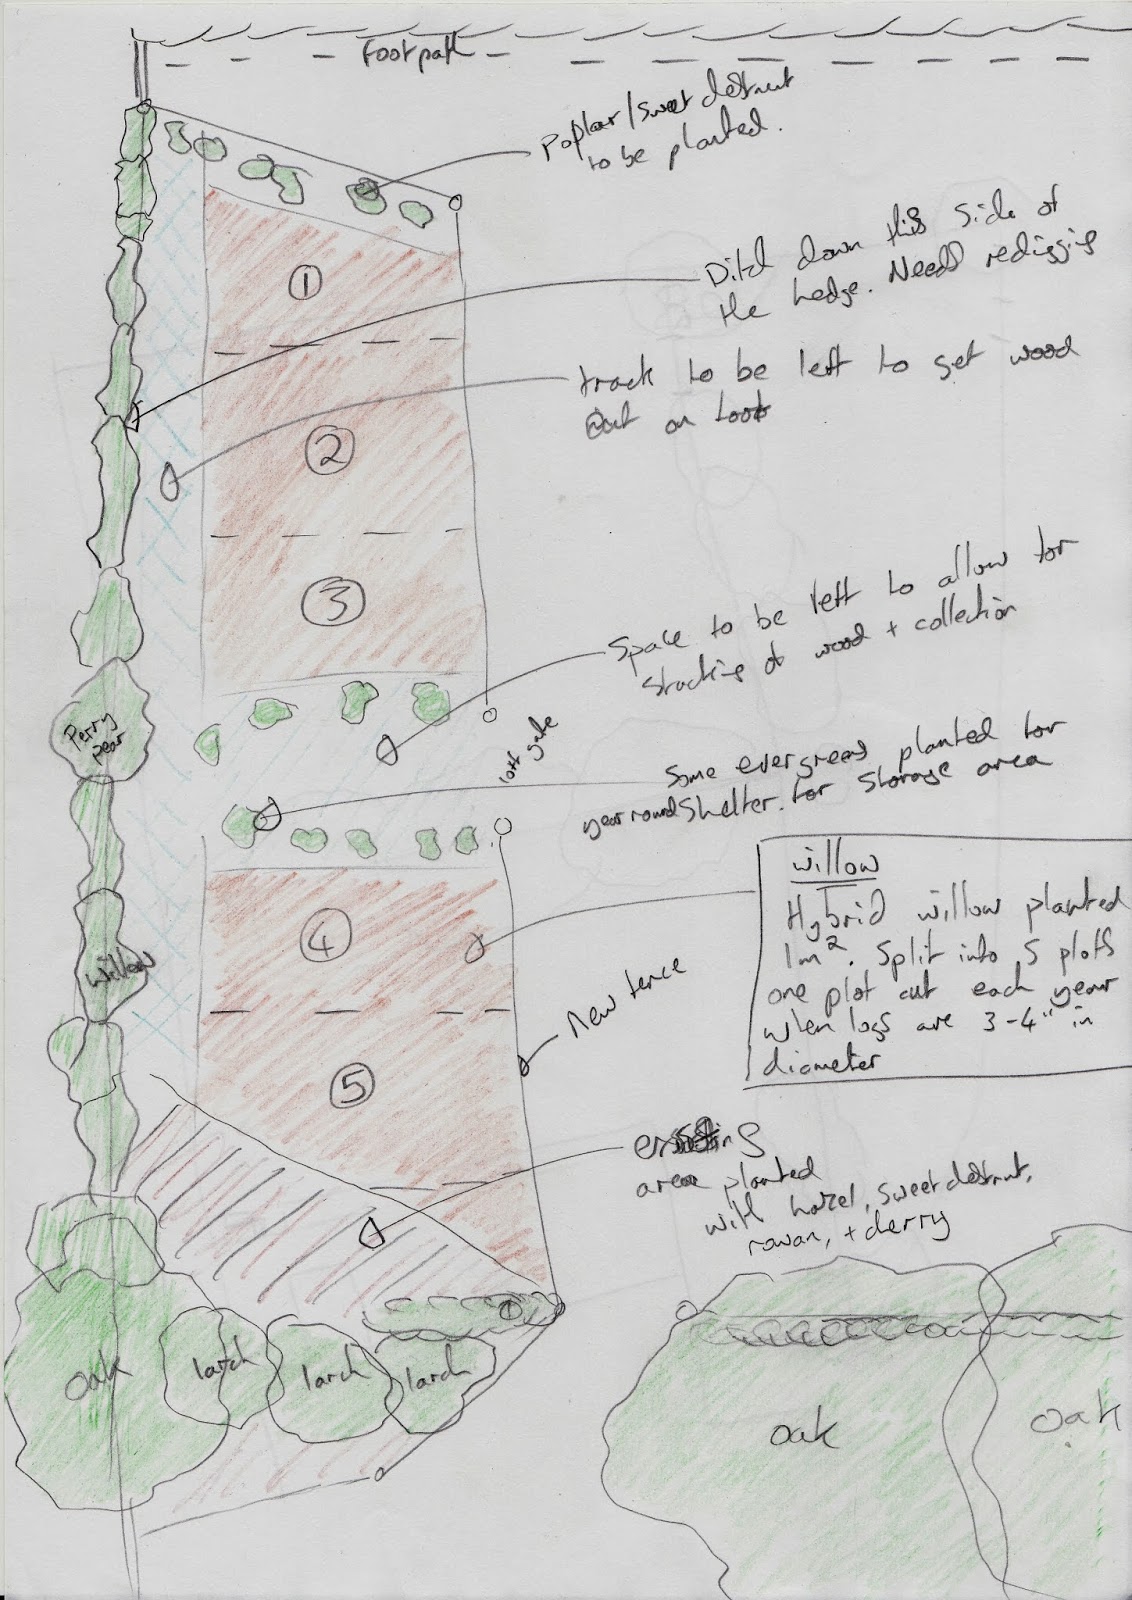 Footpath
Poplar/sweet chestnut
to be planted.
Ditch down this side of
the hedge. Needs redigging
track to be left to get wood
out on
Space to be left to allow for
stacking of wood + collection
Some evergreens planted for
year round shelter. for storage area
gate
Perry
pear
willow
Hybrid willow planted
1m². Split into 5 plots
one plot cut each year
when logs are 3-4" in
diameter
willow
New fence
existing
area planted
with hazel, sweet chestnut,
rowan, + cherry
1
2
3
4
5
oak
larch
larch
larch
oak
oak